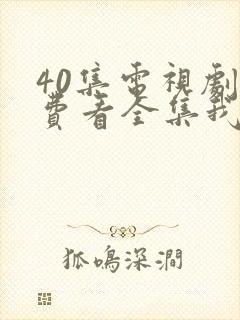 40集電視劇
費看全集我
狐鳴深澗